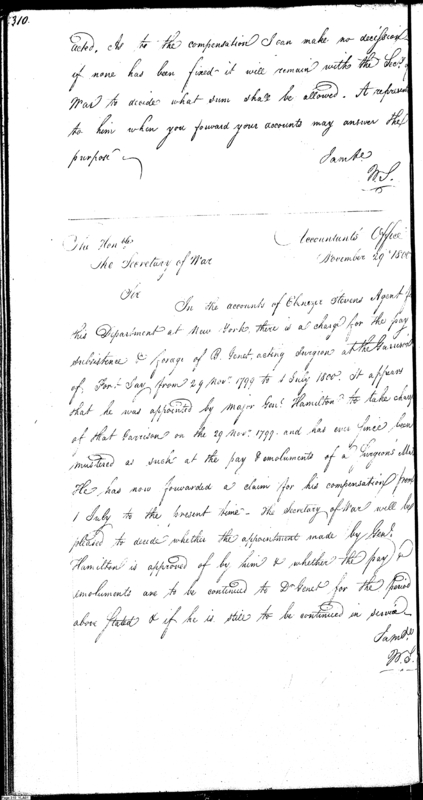 310.
acted. As to the compensation I can make no decission
if none has been fixed - it will remain with the Secy. of
War to decide what sum shall be allowed. A represent
to him when you forward your accounts may answer the
purpose
I am &c
W.S.
The Honble
Accountant's Office
The Secretary of War
November 29th 1800
Sir
In the accounts of Ebenezer Stevens Agent f
his Department at New York, there is a charge for the pay
subsistence & forage of B. Genet, acting Surgeon at the Garrison
of Fort Jay from 29 Novr. 1799 to 1 July 1800. It appears
that he was appointed by major Genl. Hamilton to take charg
of that Garrison on the 29 Novr. 1799. and has ever since been
mustered as such at the pay & emoluments of a Surgeons Mat
He has now forwarded a claim for his compensation from
1 July to the present time - The Secretary of War will be
pleased to decide whether the appointment made by Genl.
Hamilton is approved of by him & whether the pay &
emoluments are to be continued to Dr Genet for the period
above stated & if he is still to be continued in service
I am &c
W.S.